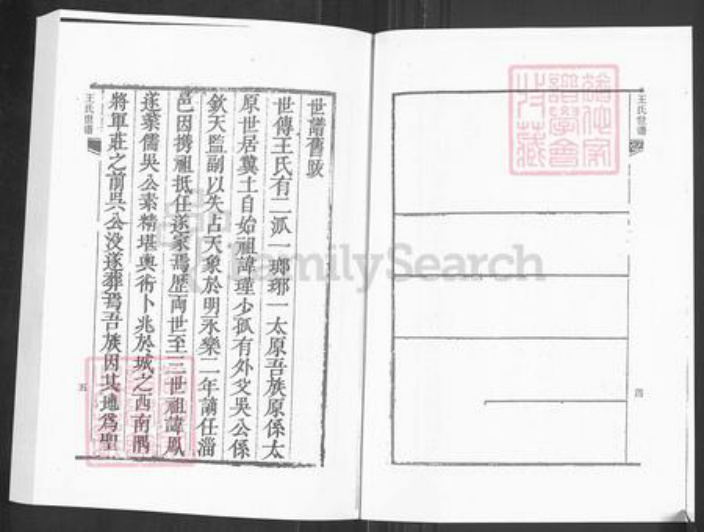 王氏世譜
四
世譜舊跋
世傳王氏有二派一瑯琊一太原吾族原係太
原世居冀土自始祖諱瑾少孤有外父吳公係
欽天監副以失占天象於明永樂二年謫任淄
邑因携祖抵任遂家焉歷兩世至三世祖諱鳳
遂業儒吳公素精堪輿術卜兆於城之西南隅
將軍莊之前吳公没遂葬焉吾族因其地為聖
王氏世譜
五
FamilySearch